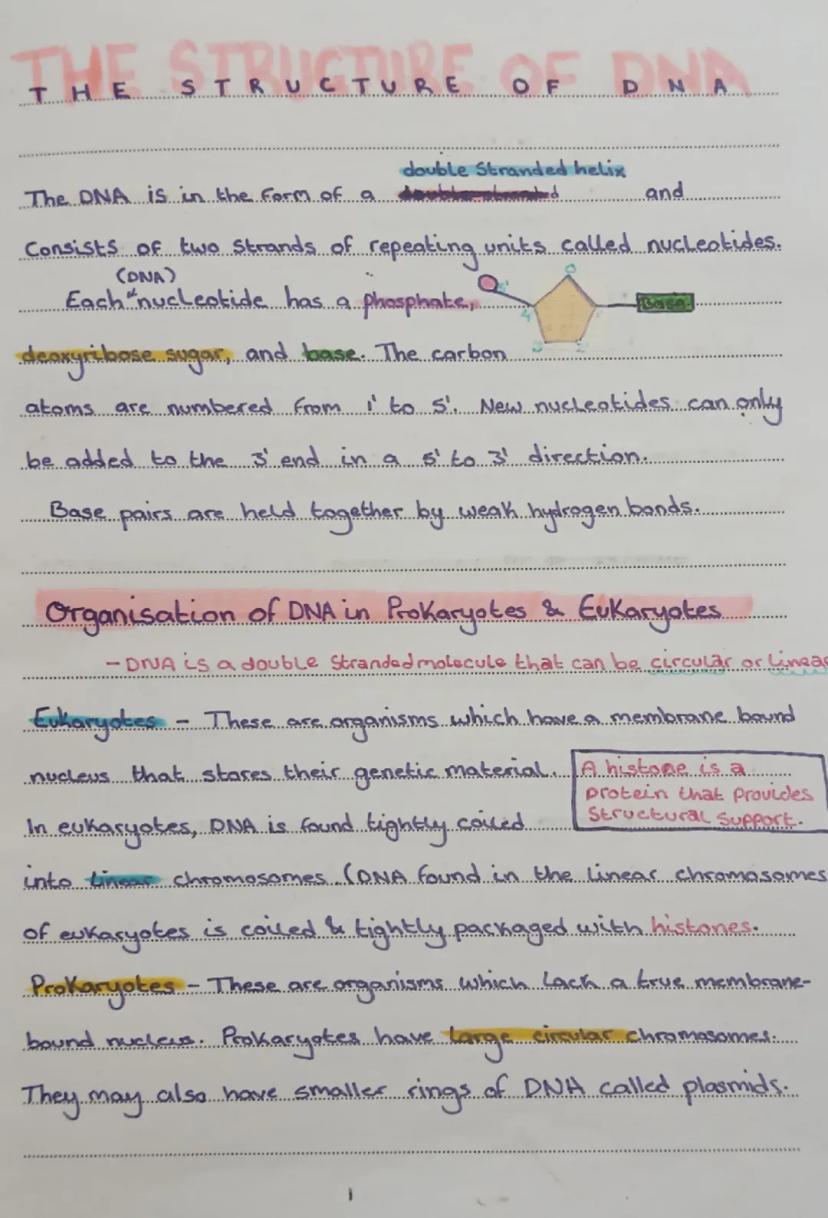 THE STRUCTURE OF DNA
THE STRUCTURE OF DNA
double Stranded helix
The DNA is in the form of a and
Consists of two strands of repeating units called nucleotides.
(DNA)
Each nucleotide has a phosphate,
4'
Base
deoxyribose sugar, and base. The carbon
atoms are numbered from 1' to 5'. New nucleotides can only
be added to the 3' end in a 5' to 3' direction.
Base pairs are held together by weak hydrogen bonds.
Organisation of DNA in Prokaryotes & Eukaryotes
- DNA is a double stranded molecule that can be circular or linear
Eukaryotes - These are organisms which have a membrane bound
nucleus that stores their genetic material.
A histone is a
protein that provides
Structural support.
In eukaryotes, DNA is found tightly coiled
into linear chromosomes (DNA found in the linear chromosomes
of eukaryotes is coiled & tightly packaged with histones.
Prokaryotes - These are organisms which lack a true membrane-
bound nucleus. Prokaryotes have large circular chromosomes.
They may also have smaller rings of DNA called plasmids.
1